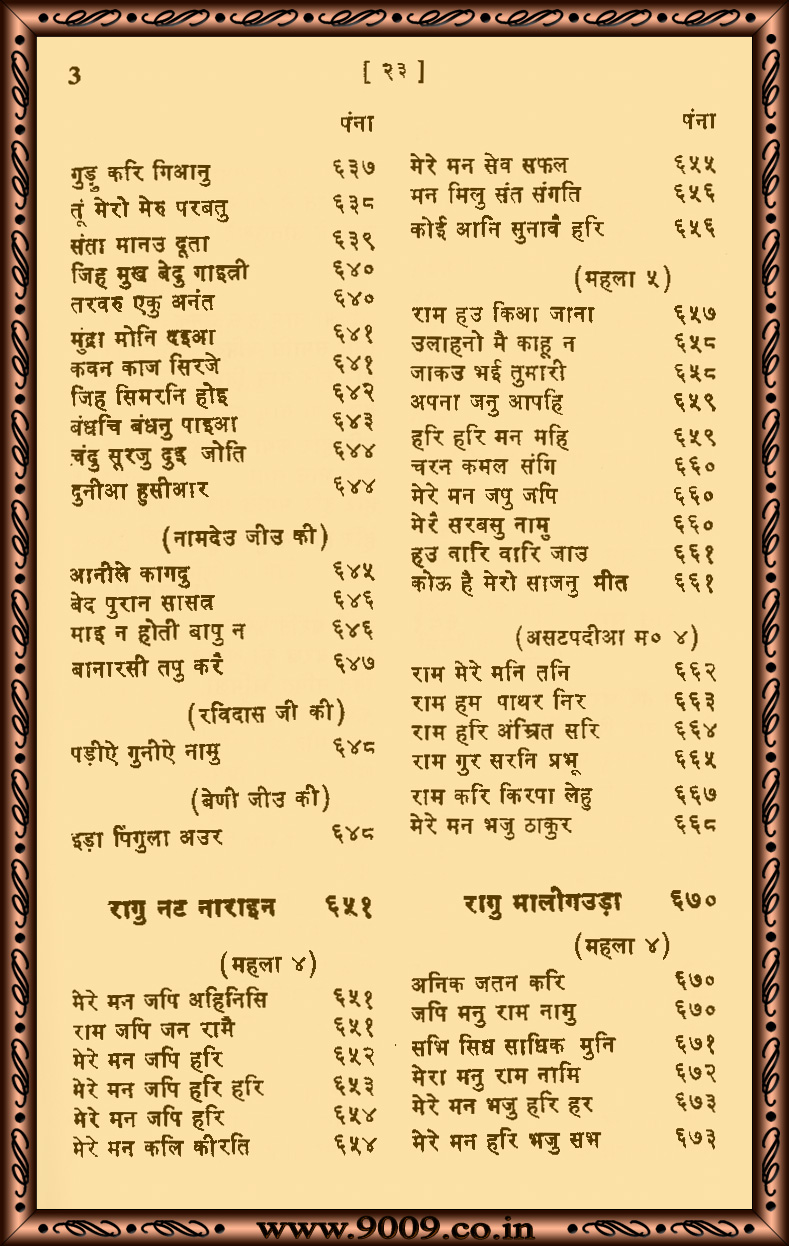 3
[ २३ ]
पंना
गुड़ु करि गिआनु ६३७
तूं मेरो मेरु परबतु ६३८
संता मानउ दूता ६३९
जिह मुख बेदु गाइत्री ६४०
तरवरु एकु अनंत ६४०
मुंद्रा मोनि दइआ ६४१
कवन काज सिरजे ६४१
जिह सिमरनि होइ ६४२
बंधचि बंधनु पाइआ ६४३
चंदु सूरजु दुइ जोति ६४४
दुनीआ हुसीआर ६४४
(नामदेउ जीउ की)
आनीले कागदु ६४५
बेद पुरान सासत्र ६४६
माइ न होती बापु न ६४६
बानारसी तपु करै ६४७
(रविदास जी की)
पड़ीऐ गुनीऐ नामु ६४८
(बेणी जीउ की)
इड़ा पिंगुला अउर ६४८
रागु नट नाराइन ६५१
(महला ४)
मेरे मन जपि अहिनिसि ६५१
राम जपि जन रामै ६५१
मेरे मन जपि हरि ६५२
मेरे मन जपि हरि हरि ६५३
मेरे मन जपि हरि ६५४
मेरे मन कलि कीरति ६५४
पंना
मेरे मन सेव सफल ६५५
मन मिलु संत संगति ६५६
कोई आनि सुनावै हरि ६५६
(महला ५)
राम हउ किआ जाना ६५७
उलाहनो मै काहू न ६५८
जाकउ भई तुमारी ६५८
अपना जनु आपहि ६५९
हरि हरि मन महि ६५९
चरन कमल संगि ६६०
मेरे मन जपु जपि ६६०
मेरै सरबसु नामु ६६०
हउ वारि वारि जाउ ६६१
कोऊ है मेरो साजनु मीत ६६१
(असटपदीआ म० ४)
राम मेरे मनि तनि ६६२
राम हम पाथर निर ६६३
राम हरि अंम्रित सरि ६६४
राम गुर सरनि प्रभू ६६५
राम करि किरपा लेहु ६६७
मेरे मन भजु ठाकुर ६६८
रागु मालीगउड़ा ६७०
(महला ४)
अनिक जतन करि ६७०
जपि मनु राम नामु ६७०
सभि सिध साधिक मुनि ६७१
मेरा मनु राम नामि ६७२
मेरे मन भजु हरि हर ६७३
मेरे मन हरि भजु सभ ६७३
www.9009.co.in